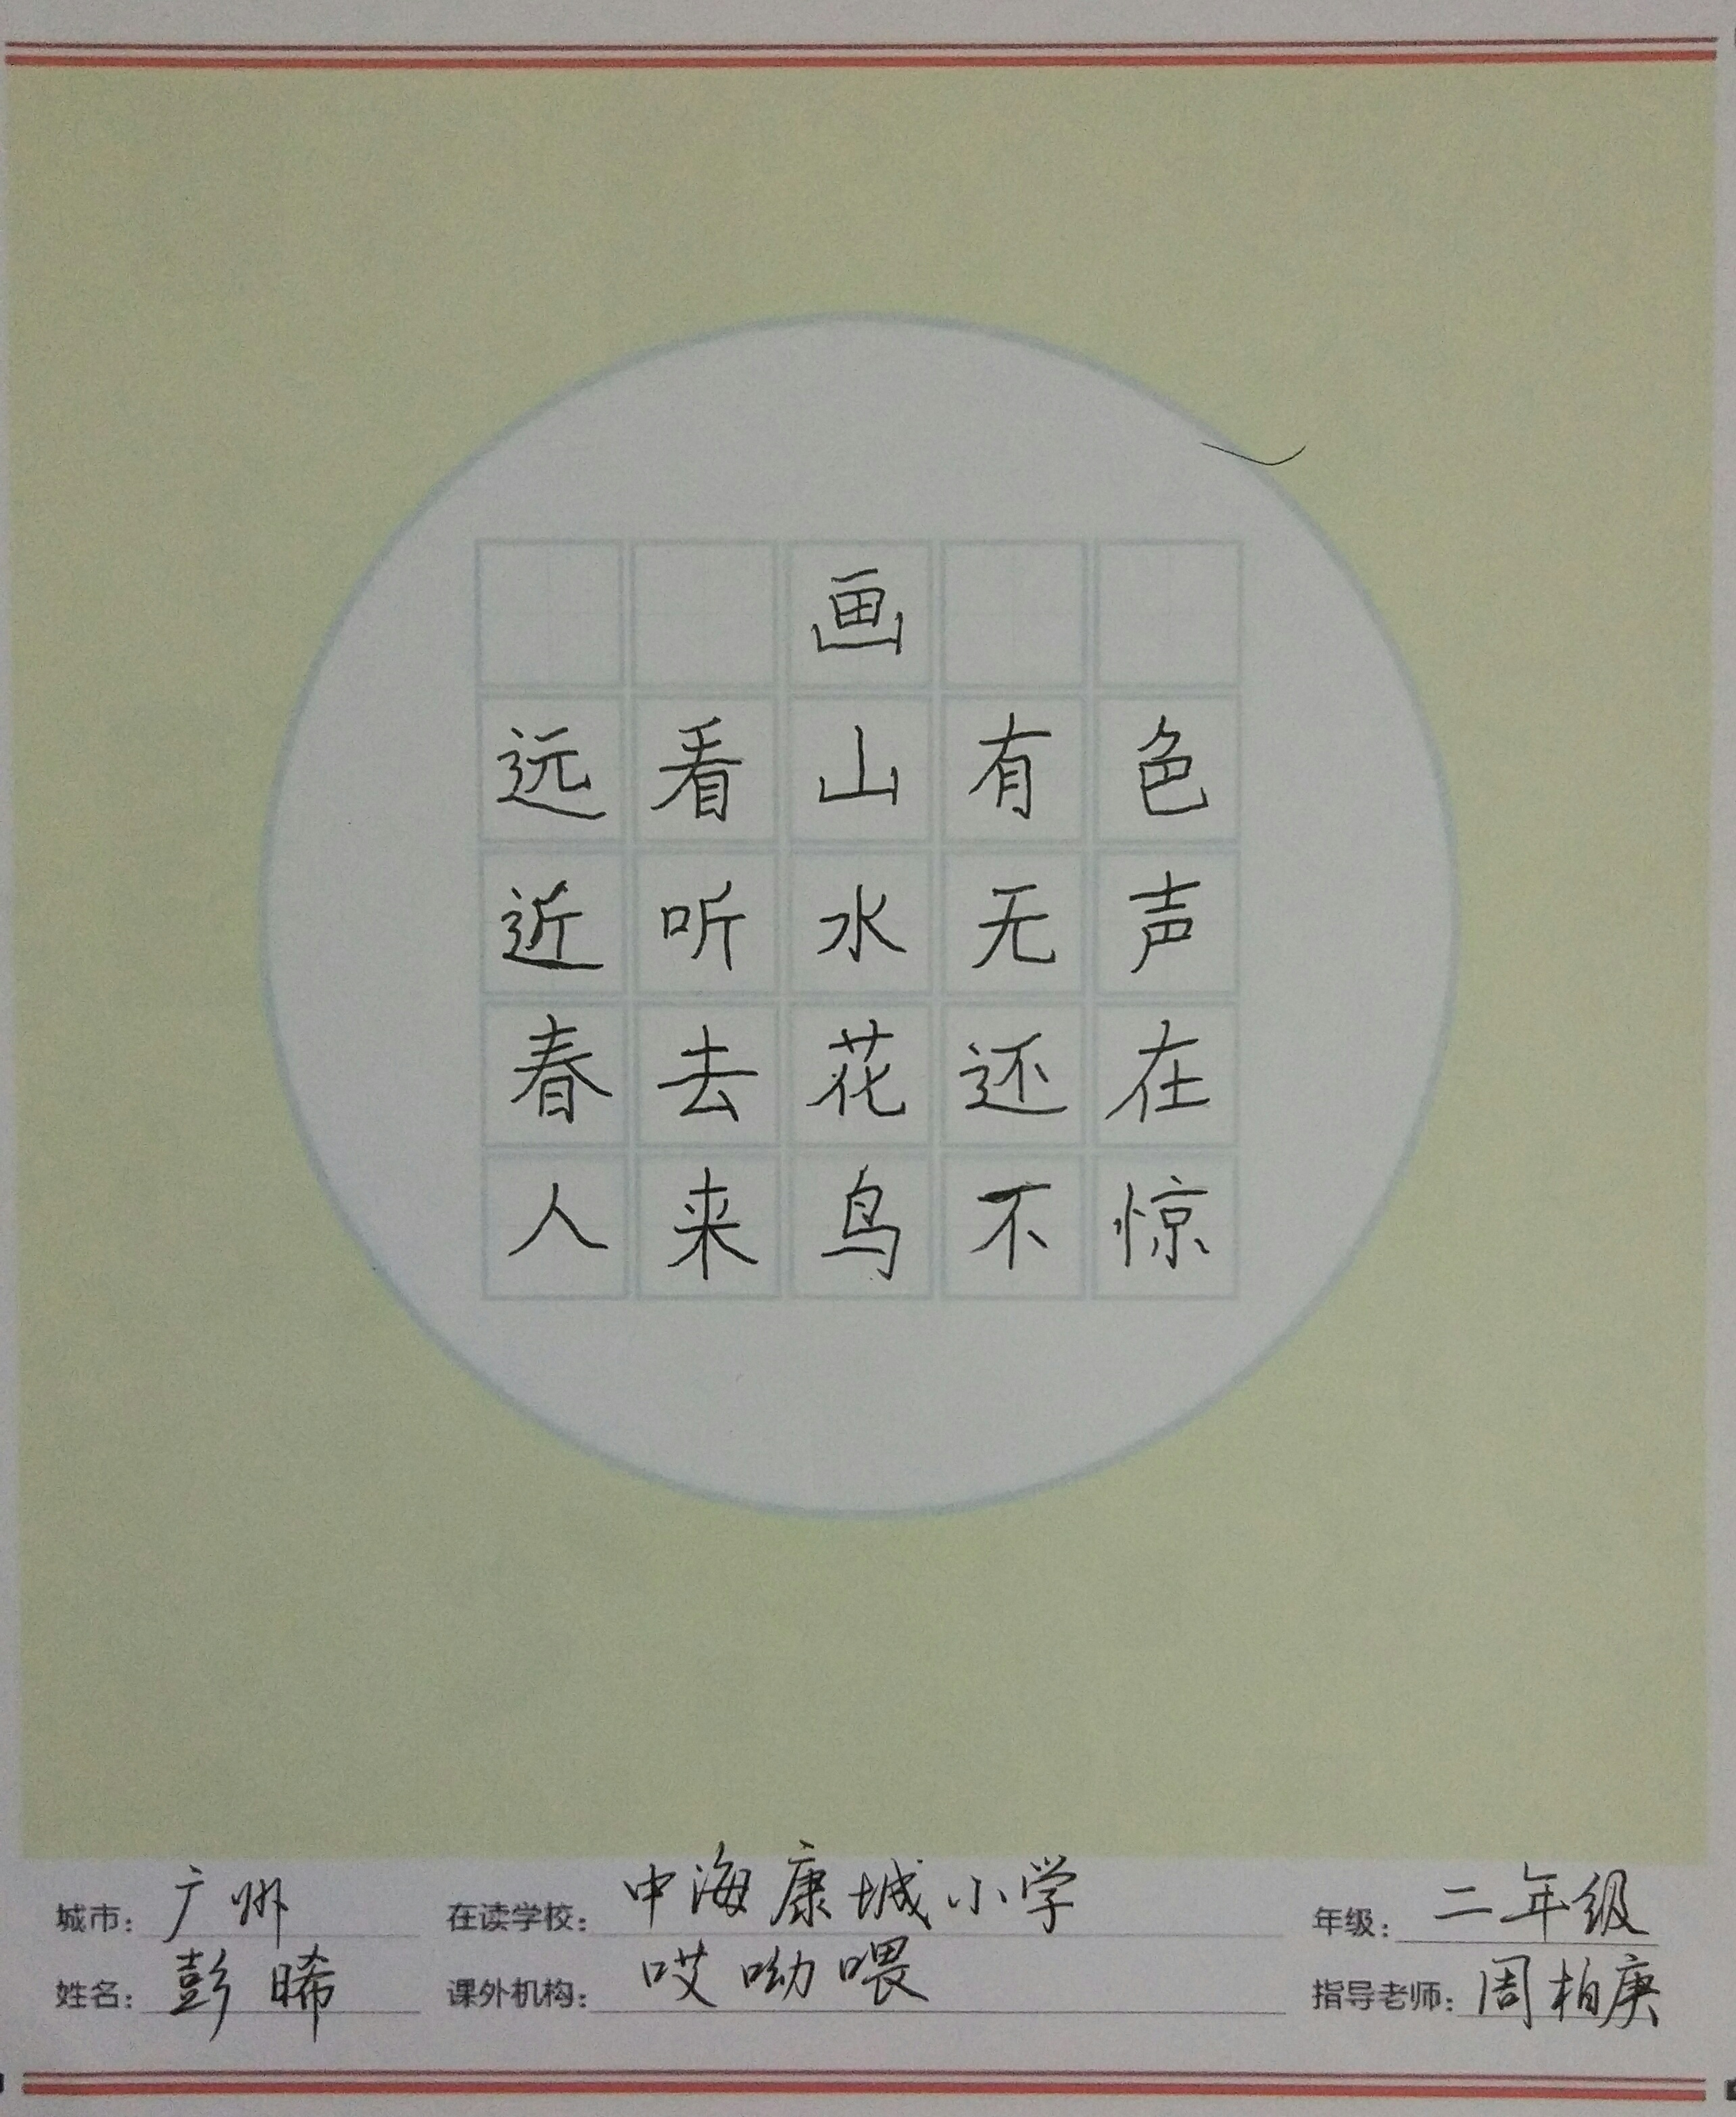 画
远看山有色
近听水无声
春去花还在
人来鸟不惊
城市: 广州 在读学校: 中海康城小学 年级: 二年级
姓名: 彭晞 课外机构: 哎呦喂 指导老师: 周柏庚